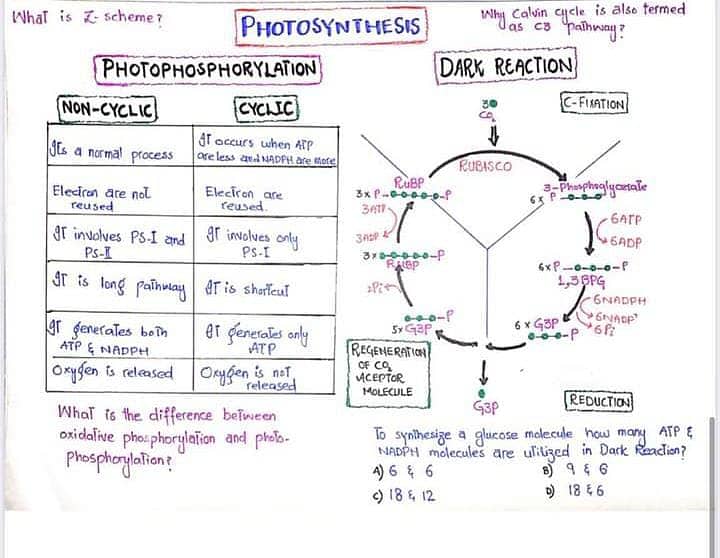 What is Z-scheme?
PHOTOSYNTHESIS
Why Calvin cycle is also termed
as C3 pathway?
PHOTOPHOSPHORYLATION
NON-CYCLIC
CYCLIC
Its a normal process
It occurs when ATP
are less and NADPH are more
Electron are not
reused
Electron are
reused.
It involves PS-I and
PS-II
It involves only
PS-I
It is long pathway
It is shortcut
It generates both
ATP & NADPH
It generates only
ATP
Oxygen is released
Oxygen is not
released
What is the difference between
oxidative phosphorylation and photo-
phosphorylation?
DARK REACTION
C-FIXATION
3
CO2
RUBISCO
RuBP
3x P P
3-Phosphoglycerate
6x P
3ATP
3ADP
6ATP
6ADP
3x P
RuBP
6x P P
1,3BPG
2Pi
6NADPH
6NADP+
6Pi
P
5x G3P
6 x G3P
P
REGENERATION
OF CO2
ACEPTOR
MOLECULE
G3P
REDUCTION
To synthesize a glucose molecule how many ATP &
NADPH molecules are utilized in Dark Reaction?
A) 6 & 6
B) 9 & 6
C) 18 & 12
D) 18 & 6